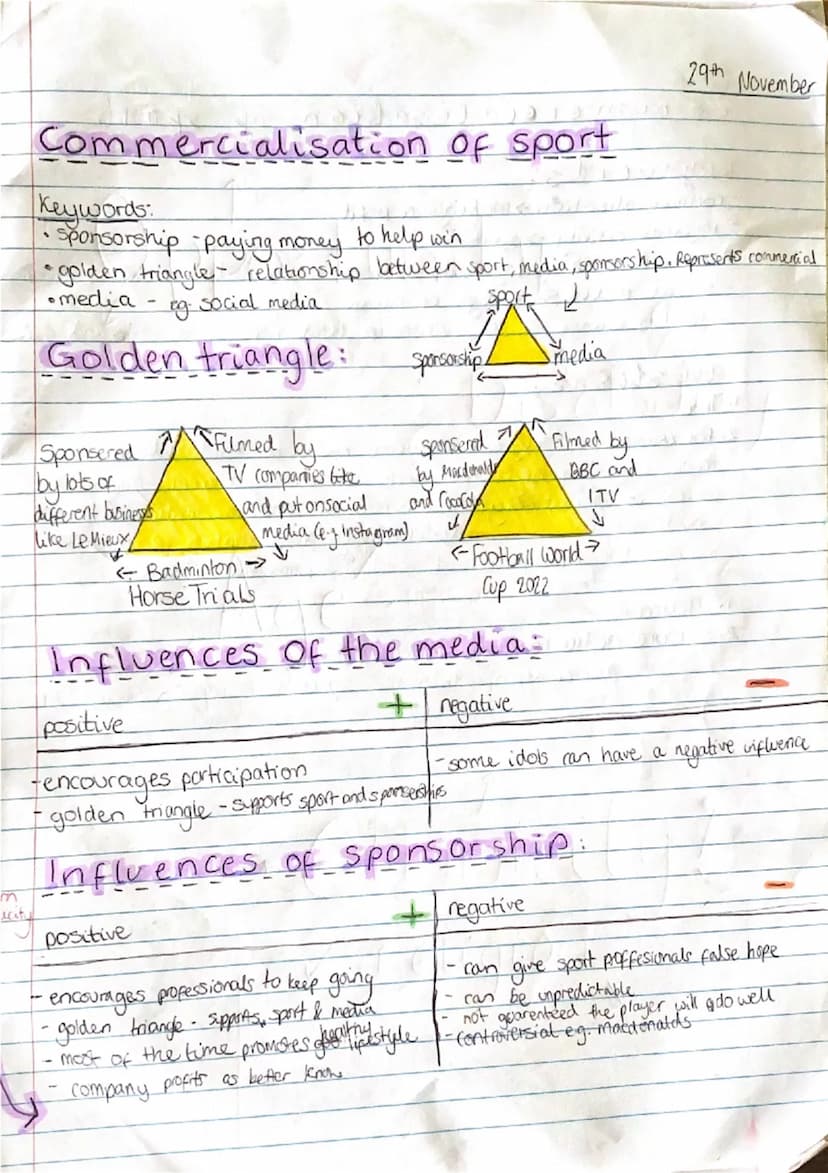 29th November
Commercialisation of sport
Keywords:
• sponsorship - paying money to help win
• golden triangle - relationship between sport, media, sponsorship. Represents commercial
• media - eg. social media
sport
Golden triangle:
sponsorship
media
Sponsered
by lots of
different business
like LeMieux
Filmed by
TV companies like
and put on social
media (e.g Instagram)
← Badminton →
Horse Trials
sponsered
by Macdonalds
and Cocacola
Filmed by
BBC and
ITV
← Football World →
Cup 2022
Influences of the media:
positive +
negative -
- encourages participation
- golden triangle - supports sport and sponserships
- some idols can have a negative
Influences of sponsorship:
positive +
negative -
- encourages professionals to keep going
- golden triangle - supports sport & media
- most of the time promotes healthy lifestyle
- company profits as better know
- can give sport proffesionals false hope
- can be unpredictable
- not quarenteed the player will do well
- controversial e.g. macdonalds